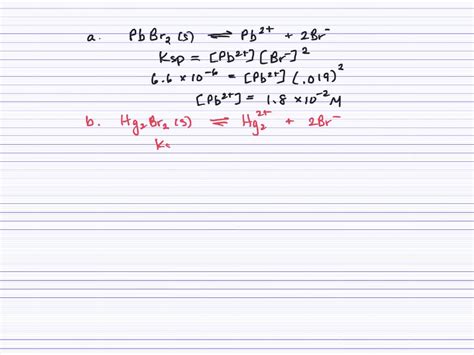 a. PbBr₂(s) ⇌ Pb²⁺ + 2Br⁻
Ksp = [Pb²⁺][Br⁻]²
6.6 × 10⁻⁶ = [Pb²⁺](.019)²
[Pb²⁺] = 1.8 × 10⁻² M
b. Hg₂Br₂(s) ⇌ Hg₂²⁺ + 2Br⁻
Ks